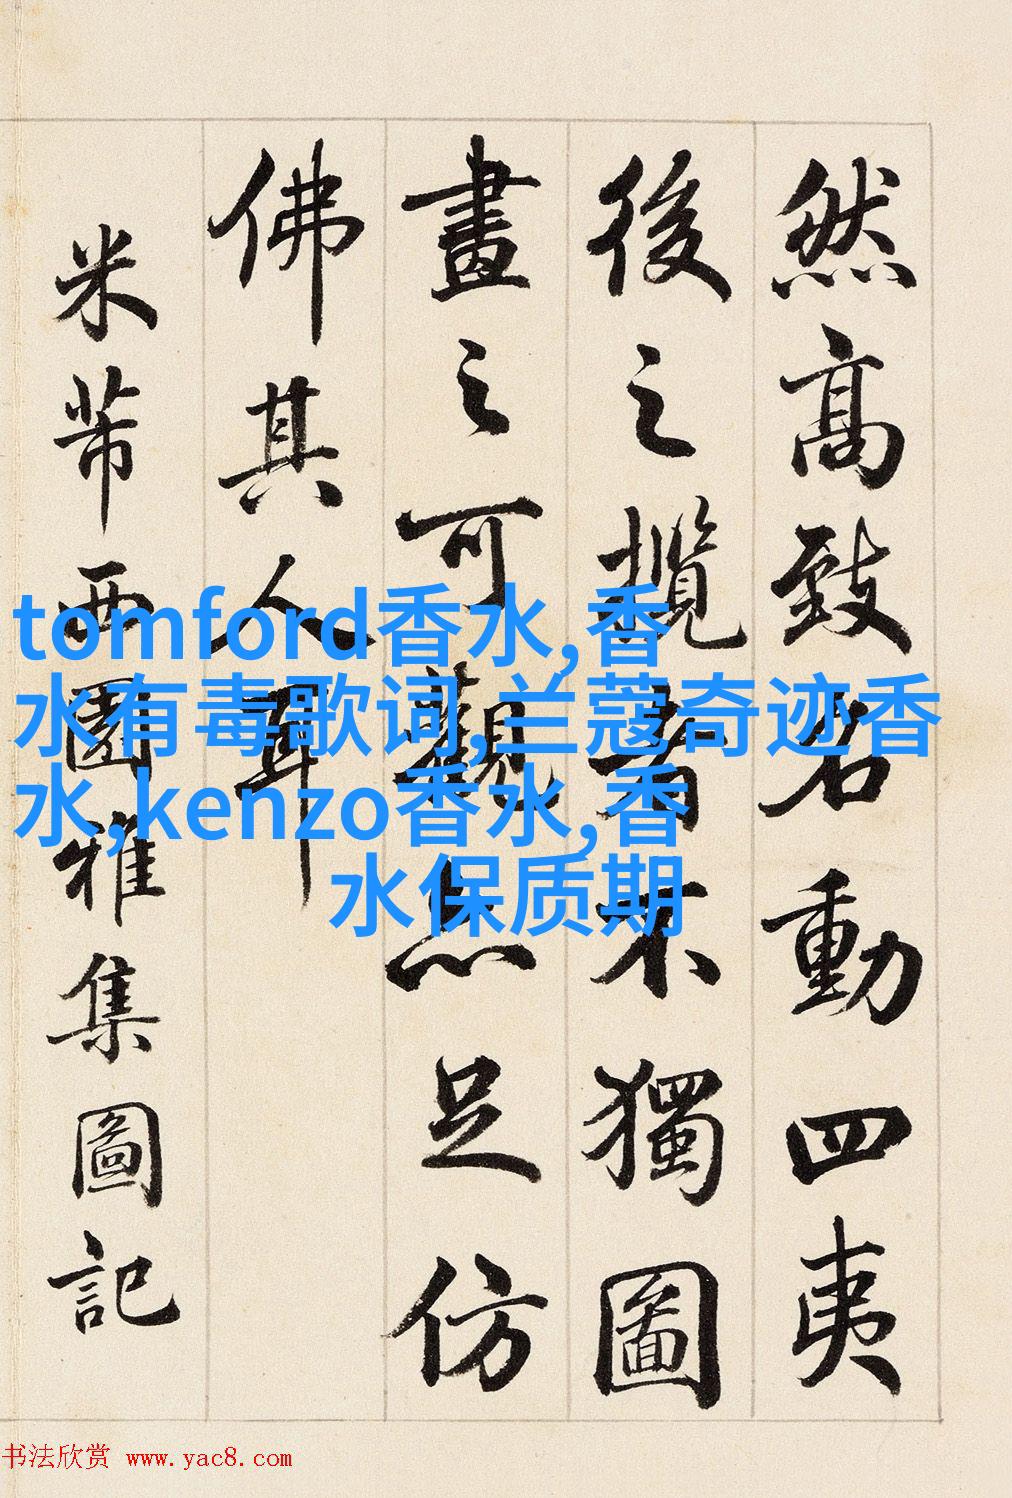 然高致名動四夷
後之攬者不獨圖
畫之可觀亦足仿
佛其人耳
米芾西園雅集圖記
tomford香水,香
水有毒歌词,兰蔻奇迹香
水,kenzo香水,香
水保质期
书法欣赏 www.yac8.com